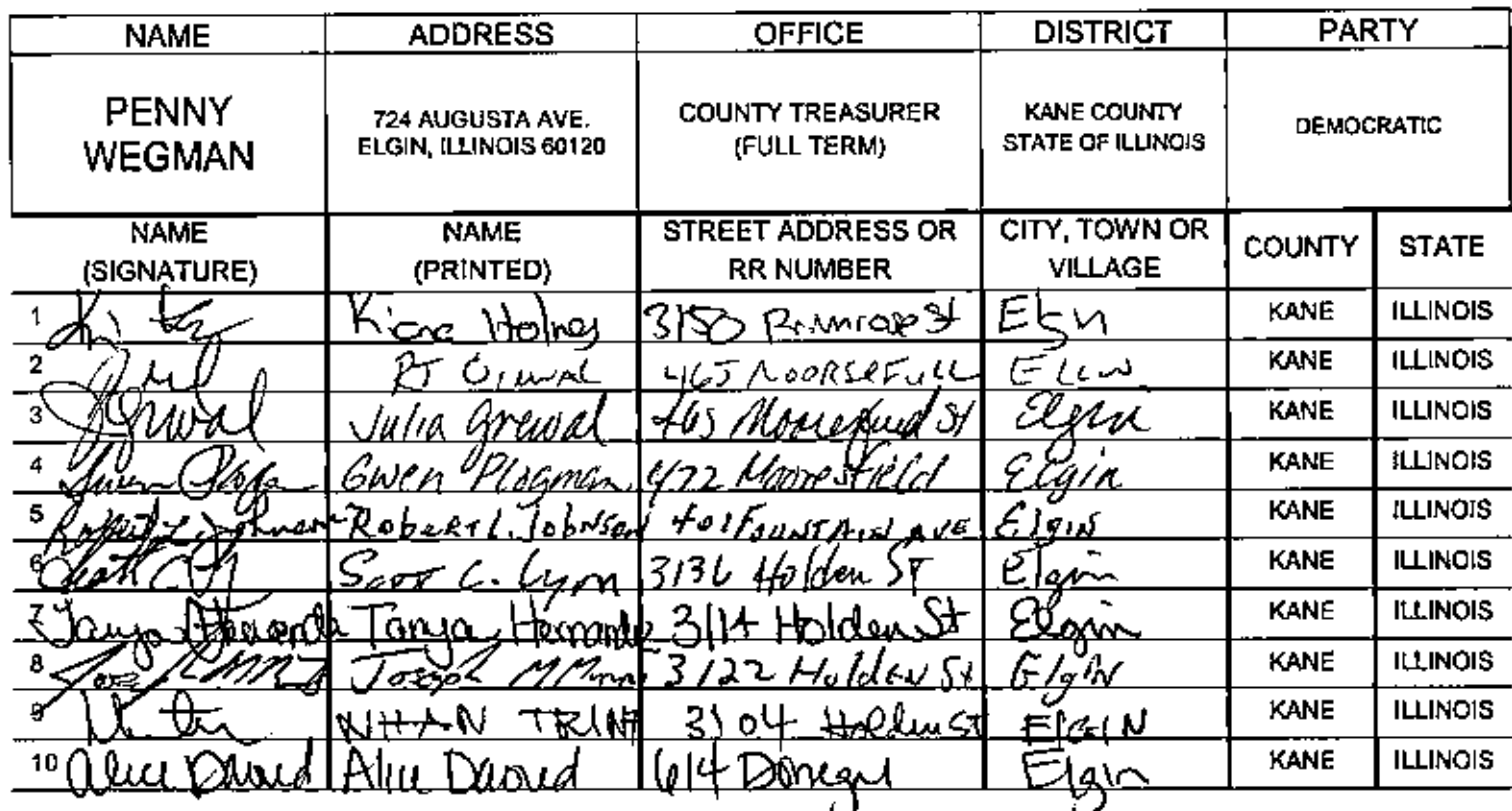 NAME ADDRESS OFFICE DISTRICT PARTY
PENNY WEGMAN 724 AUGUSTA AVE. ELGIN, ILLINOIS 60120 COUNTY TREASURER (FULL TERM) KANE COUNTY STATE OF ILLINOIS DEMOCRATIC
NAME (SIGNATURE) NAME (PRINTED) STREET ADDRESS OR RR NUMBER CITY, TOWN OR VILLAGE COUNTY STATE
1 Holnes 3150 St Elgin KANE ILLINOIS
2 RJ 465 KANE ILLINOIS
3 JGrewal Julia Grewal 465 St Elgin KANE ILLINOIS
4 Gwen Gwen Plogman 472 Mooresfield Elgin KANE ILLINOIS
5 Robert L. Johnson Robert L. Johnson 401 FOUNTAIN AVE Elgin KANE ILLINOIS
6 Scott C. Lynn 3136 Holden ST Elgin KANE ILLINOIS
7 Tanya Hernandez Tanya Hernandez 3114 Holden St Elgin KANE ILLINOIS
8 Joseph 3122 Holden St Elgin KANE ILLINOIS
9 NHAN TRINH 3104 Holden St ELGIN KANE ILLINOIS
10 Alice Daoud Alice Daoud 614 Donegal Elgin KANE ILLINOIS